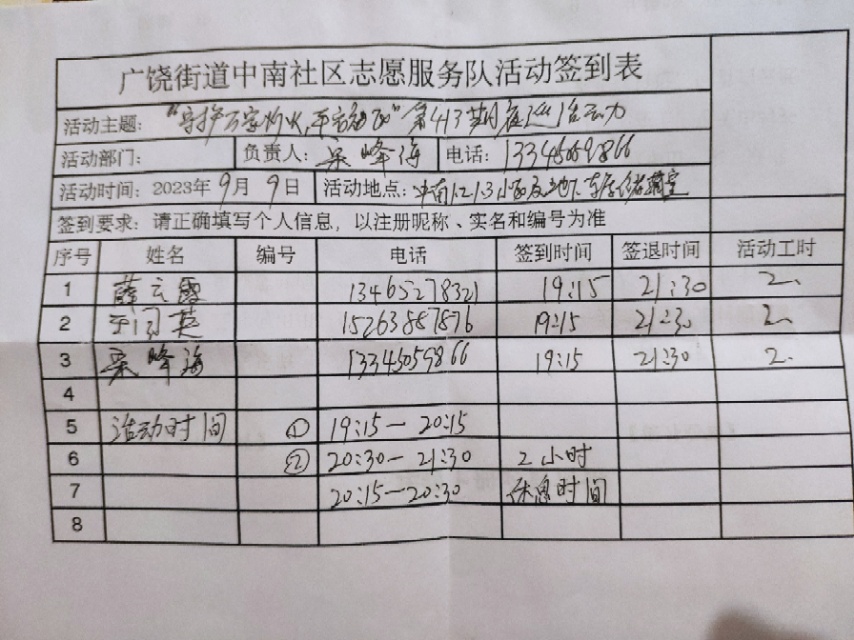 广饶街道中南社区志愿服务队活动签到表
活动主题：“守护万家灯火，平安社区”第413期夜巡活动
活动部门： 负责人：吴峰海 电话：13345059866
活动时间：2023年9月9日 活动地点：中南1.2.3小区及地下车库储藏室
签到要求：请正确填写个人信息，以注册昵称、实名和编号为准
序号 姓名 编号 电话 签到时间 签退时间 活动工时
1 薛云霞 13465278321 19:15 21:30 2.
2 15263887876 19:15 21:30 2.
3 吴峰海 13345059866 19:15 21:30 2.
4
5 活动时间 ① 19:15— 20:15
6 ② 20:30— 21:30 2小时
7 20:15—20:30 休息时间
8